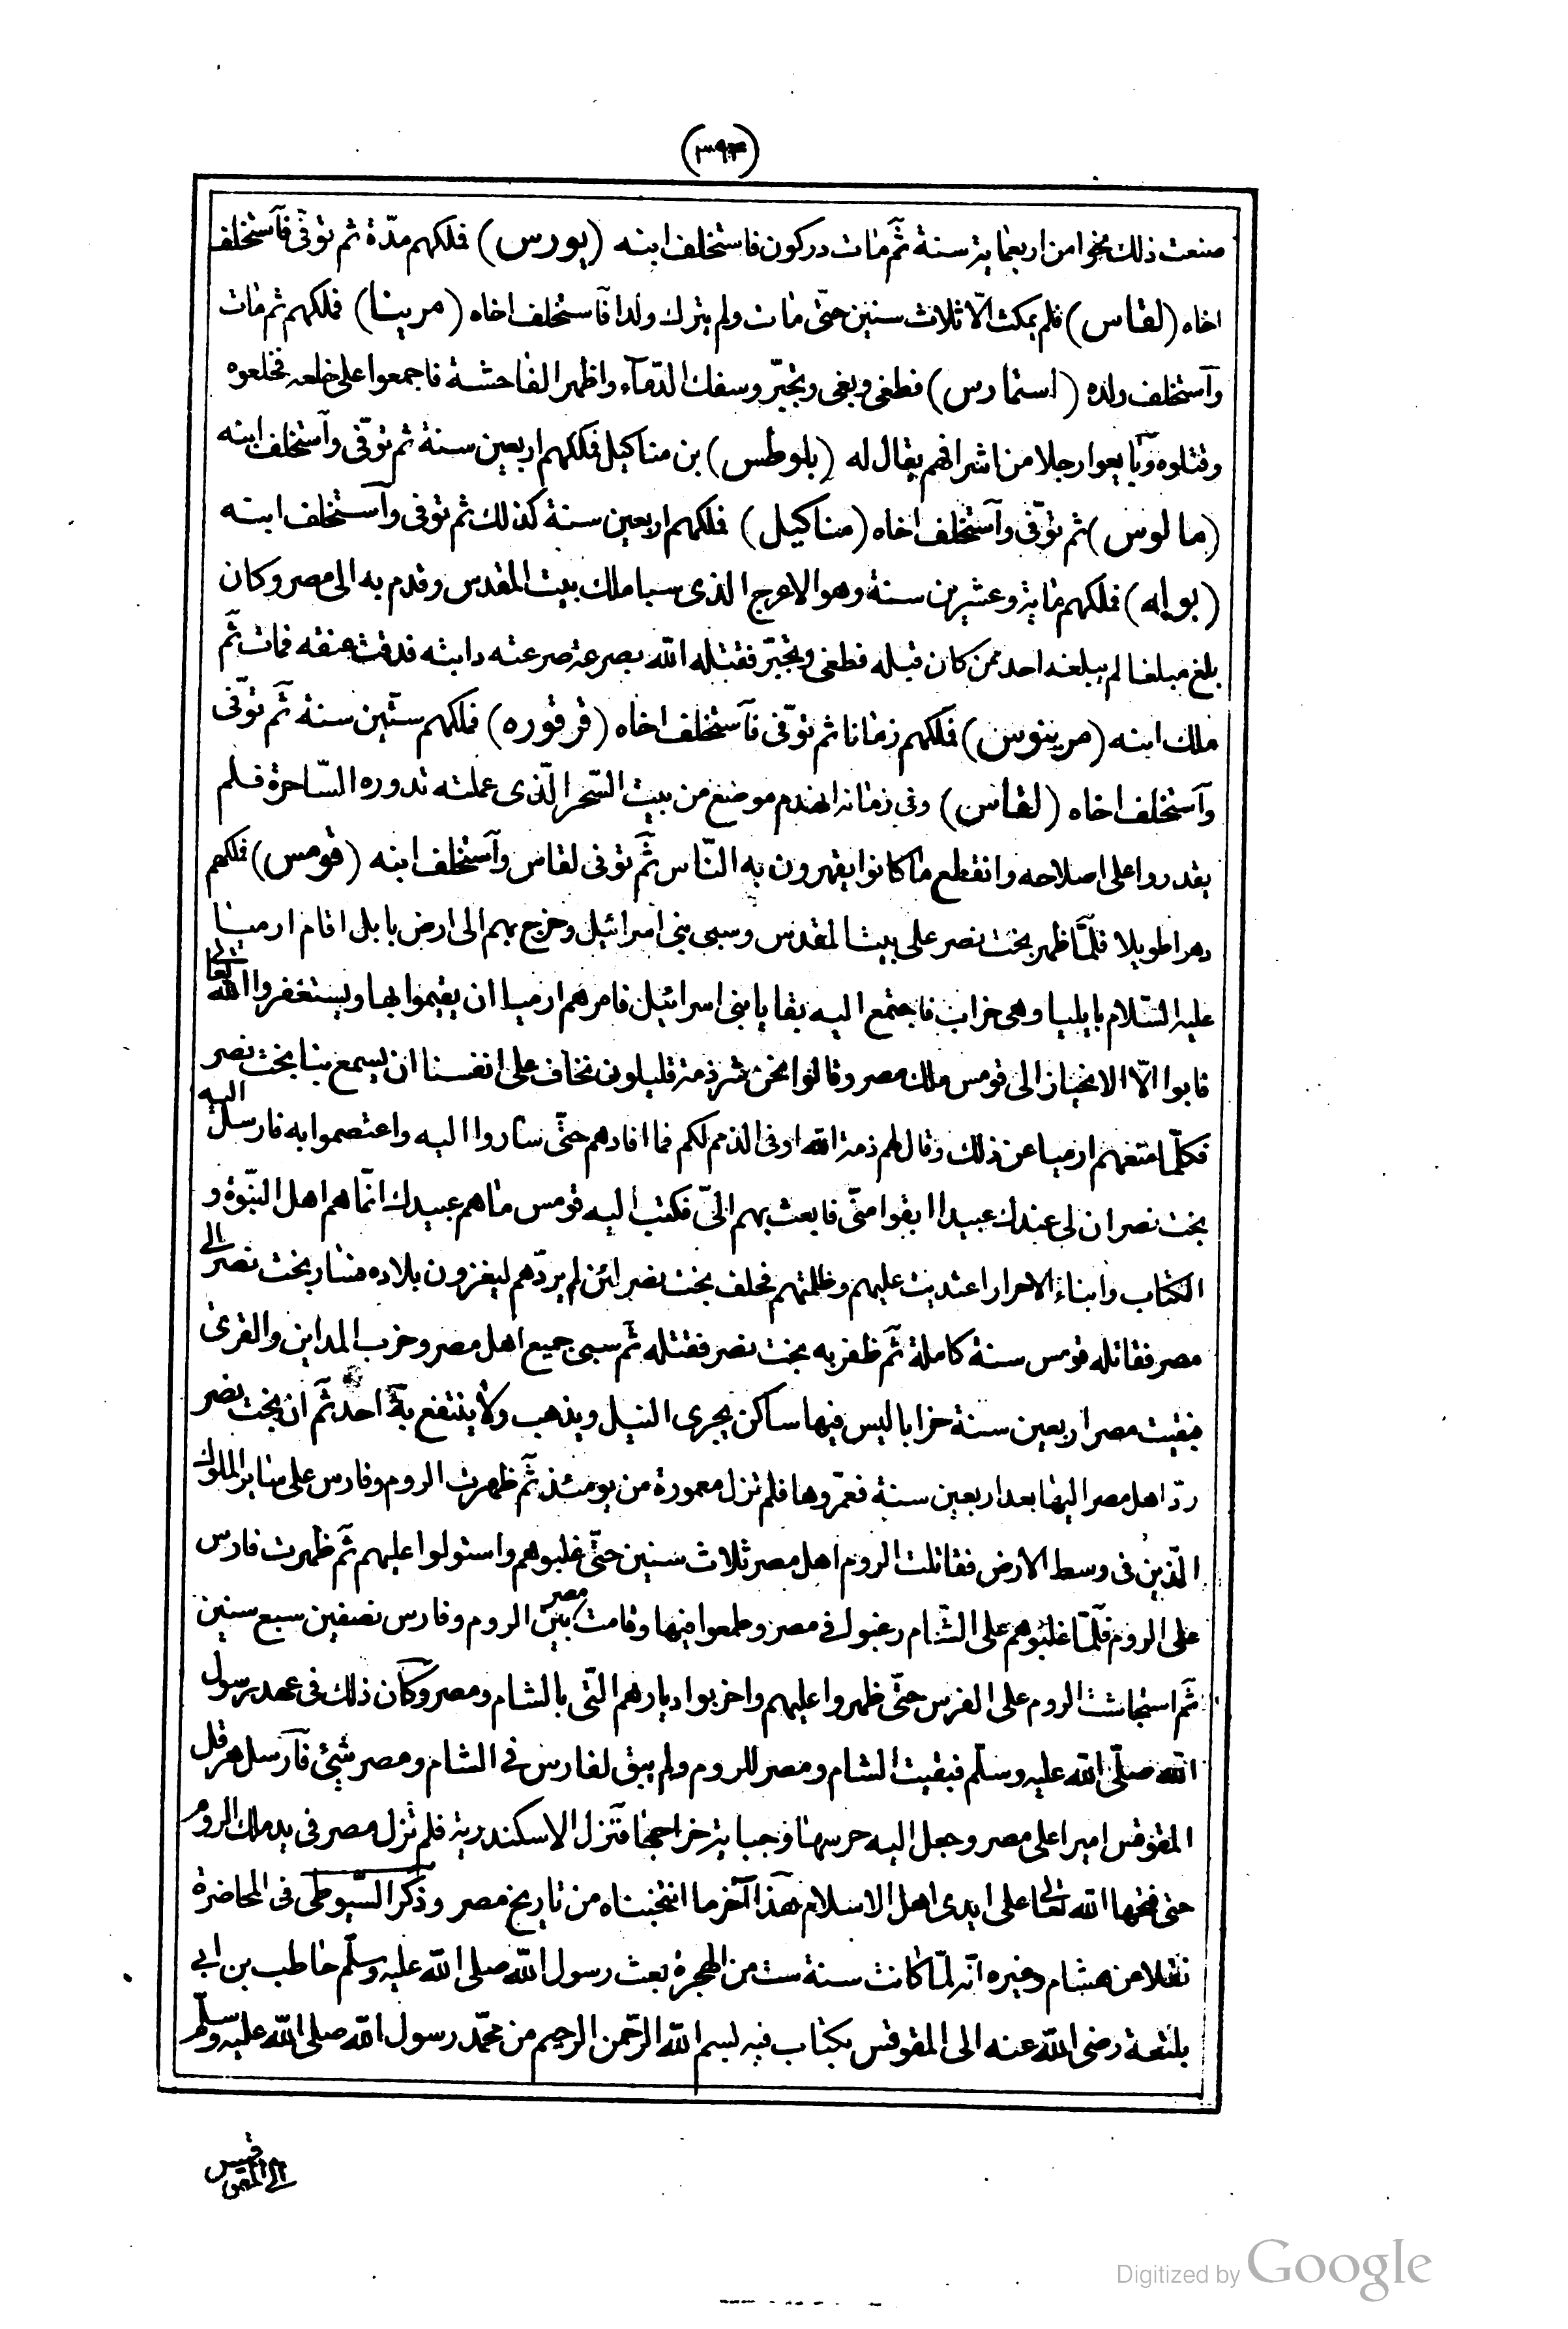 (٣٩٣)
صنعت ذلك نحوا من اربعماية سنة ثم مات دركون فاستخلف ابنه (بورس) فملكهم مدّة ثم توفى فاستخلف
اخاه (لقاس) فلم يمكث الّا ثلاث سنين حتّى مات ولم يترك ولدا فاستخلف اخاه (مرينا) فملكهم ثم مات
وآستخلف ولده (استمارس) فطغى وبغى وتجبّر وسفك الدّمآء واظهر الفاحشة فاجمعوا على خلعه فخلعوه
وقتلوه وبايعوا رجلا من اشرافهم يقال له (بلوطس) بن مناكيل فملكهم اربعين سنة ثم توفّى وآستخلف ابنه
(مالوس) ثم توفّى وآستخلف اخاه (مناكيل) فملكهم اربعين سنة كذلك ثم توفى وآستخلف ابنه
(بوله) فملكهم ماية وعشرين سنة وهو الاعرج الذى سبا ملك بيت المقدس وقدم به الى مصر وكان
بلغ مبلغا لم يبلغه احد ممن كان قبله فطغى وتجبّر فقتله الله بصرعة صرعته دابته فدقت عنقه فمات ثم
ملك ابنه (مرينوس) فملكهم زمانا ثم توفّى فآستخلف اخاه (قرقوره) فملكهم ستّين سنة ثم توفّى
وآستخلف اخاه (لقاس) وفى زمانه انهدم موضع من بيت السّحر الّذى عملته تدوره السّاحرة فلم
يقدروا على اصلاحه وانقطع ما كانوا يقهرون به النّاس ثم توفى لقاس وآستخلف ابنه (قومس) فملكهم
دهرا طويلا فلمّا ظهر بخت نصر على بيت المقدس وسبى بنى اسرائيل وخرج بهم الى ارض بابل اقام ارميا
عليه السّلام بايليا وهى خراب فاجتمع اليه بقايا بنى اسرائيل فامرهم ارميا ان يقيموا بها ويستغفروا الله تعالى
فابوا الّا الانحياز الى قومس ملك مصر وقالوا نحن شرذمة قليلون نخاف على انفسنا ان يسمع بنا بخت نصر
فكلّما منعهم ارميا عن ذلك وقال لهم ذمة الله اوفى الذمم لكم فما افادهم حتّى ساروا اليه واعتصموا به فارسل اليه
بخت نصر ان لى عندك عبيدا ابقوا منّى فابعث بهم الىّ فكتب اليه قومس ما هم عبيدك انما هم اهل النبّوة و
الكتاب وابناء الاحرار اعتديت عليهم وظلمتهم فحلف بخت نصر لئن لم يردّهم ليغزون بلاده فسار بخت نصر الى
مصر فقاتله قومس سنة كاملة ثم ظفر به بخت نصر فقتله ثم سبى جميع اهل مصر وخرب المداين والقرى
فبقيت مصر اربعين سنة خرابا ليس فيها ساكن يجرى النيل ويذهب ولا ينتفع به احد ثم ان بخت نصر
ردّ اهل مصر اليها بعد اربعين سنة فعمّروها فلم تزل معمورة من يومئذ ثم ظهرت الروم وفارس على سائر الملوك
الّذين فى وسط الارض فقاتلت الروم اهل مصر ثلاث سنين حتّى غلبوهم واستولوا عليهم ثم ظهرت فارس
على الروم فلمّا غلبوهم على الشّام رغبوا في مصر وطمعوا فيها وقامت مصر بين الروم وفارس نصفين سبع سنين
ثم استجاشت الروم على الفرس حتّى ظهروا عليهم واخربوا ديارهم الّتى بالشام ومصر وكان ذلك فى عهد رسول
الله صلّى الله عليه وسلّم فبقيت الشام ومصر للروم ولم يبق لفارس فى الشام ومصر شئ فآرسل هرقل
المقوقس اميرا على مصر وجعل اليه حرسها وجباية خراجها فنزل الاسكندرية فلم تزل مصر فى يد ملك الروم
حتى فتحها الله تعالى على ايدى اهل الاسلام هذا آخر ما انتخبناه من تاريخ مصر وذكر السّيوطى فى المحاضرة
نقلا من هشام وغيره انه لمّا كانت سنة ست من الهجرة بعث رسول الله صلى الله عليه وسلّم حاطب بن ابي
بلتعة رضى الله عنه الى المقوقس بكتاب فيه بسم الله الرّحمن الرحيم من محمّد رسول الله صلى الله عليه وسلّم
الى المقوقس
Digitized by Google